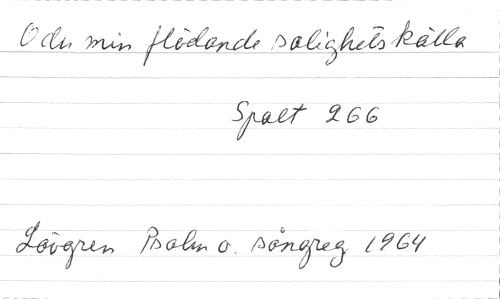 O du min flödande salighets källa
Spalt 266
Lövgren Psalm o. sångreg 1964